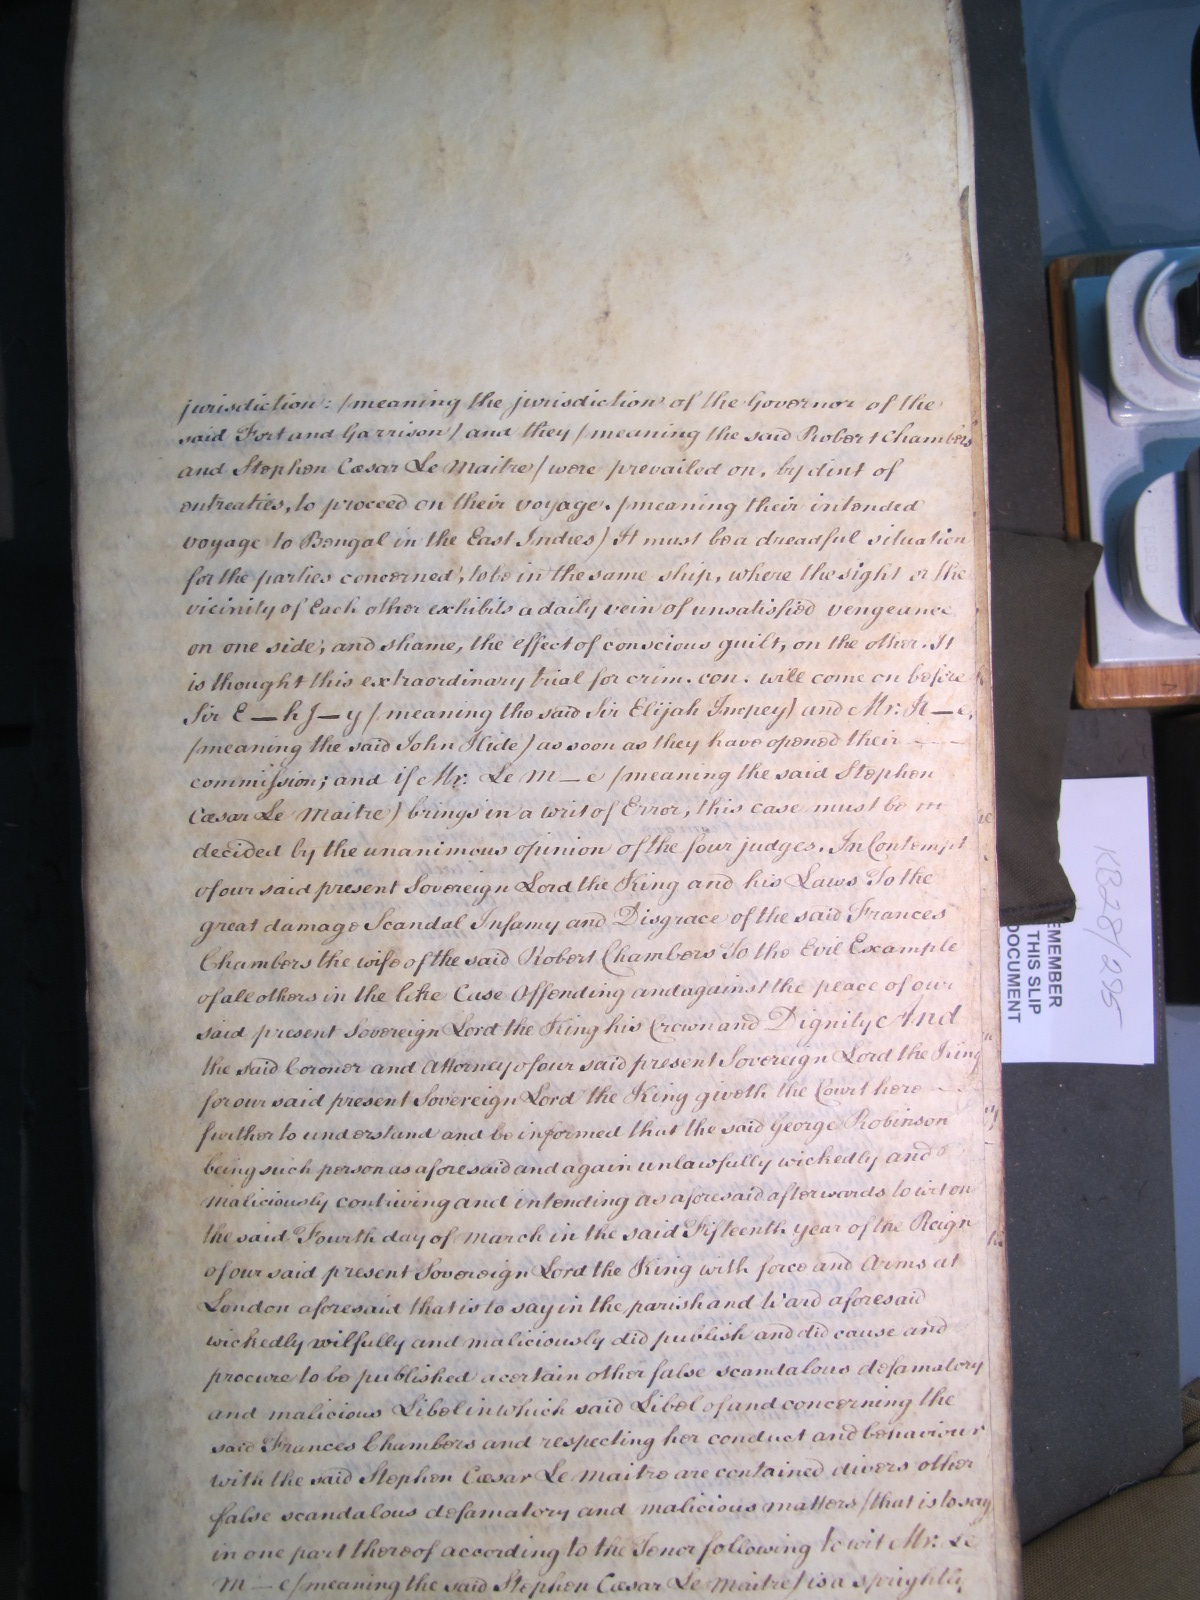 jurisdiction: /meaning the jurisdiction of the Governor of the
said Fort and Garrison/ and they /meaning the said Robert Chambers
and Stephen Cæsar Le Maitre/ were prevailed on, by dint of
entreaties, to proceed on their voyage. /meaning their intended
voyage to Bengal in the East Indies/ It must be a dreadful situation
for the parties concerned, to be in the same ship, where the sight or the
vicinity of Each other exhibits a daily vein of unsatisfied vengeance
on one side, and shame, the effect of conscious guilt, on the other. It
is thought this extraordinary trial for crim. con. will come on before
Sir E—h J—y /meaning the said Sir Elijah Impey/ and Mr. H—e,
/meaning the said John Hide/ as soon as they have opened their
commission; and if Mr. Le M—e /meaning the said Stephen
Cæsar Le Maitre/ brings in a writ of Error, this case must be
decided by the unanimous opinion of the four judges. In Contempt
of our said present Sovereign Lord the King and his Laws To the
great damage Scandal Infamy and Disgrace of the said Frances
Chambers the wife of the said Robert Chambers To the Evil Example
of all others in the like Case Offending and against the peace of our
said present Sovereign Lord the King his Crown and Dignity And
the said Coroner and Attorney of our said present Sovereign Lord the King
for our said present Sovereign Lord the King giveth the Court here
further to understand and be informed that the said George Robinson
being such person as aforesaid and again unlawfully wickedly and
maliciously contriving and intending as aforesaid afterwards to wit on
the said Fourth day of March in the said Fifteenth year of the Reign
of our said present Sovereign Lord the King with force and Arms at
London aforesaid that is to say in the parish and Ward aforesaid
wickedly wilfully and maliciously did publish and did cause and
procure to be published a certain other false scandalous defamatory
and malicious Libel in which said Libel of and concerning the
said Frances Chambers and respecting her conduct and behaviour
with the said Stephen Cæsar Le Maitre are contained divers other
false scandalous defamatory and malicious matters /that is to say
in one part thereof according to the Tenor following to wit Mr. Le
M—e /meaning the said Stephen Cæsar Le Maitre/ is a sprightly
KB28/295
EMEMBER
THIS SLIP
DOCUMENT